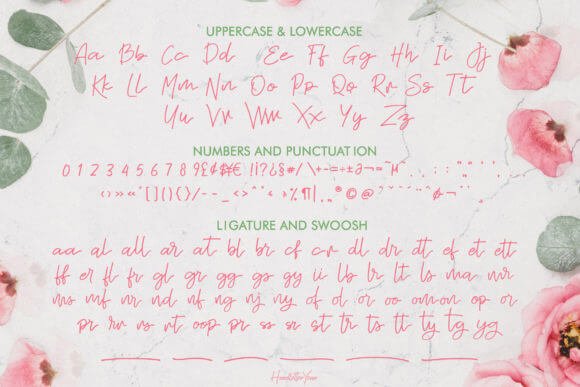 UPPERCASE & LOWERCASE
Aa Bb Cc Dd Ee Ff Gg Hh Ii Jj
Kk Ll Mm Nn Oo Pp Qq Rr Ss Tt
Uu Vv Ww Xx Yy Zz
NUMBERS AND PUNCTUATION
0 1 2 3 4 5 6 7 8 9 £ ¢ $ ¥ € ! i ? ¿ § # / \ + - = ÷ ±
‹ › » « [ ] ( ) { } / - - _ < > % ¶ | ® © @
LIGATURE AND SWOOSH
aa al all ar at bl br cf cr dl dr dt ef et ett
ff er fl fr gl gr gg gs gy ii lb lr lt ls ma mr
ms mf nr nd nf ng nj ny of ol or oo om on op or
pr rr rs rt oop pr ss sr st tr ts tt ty tg yg